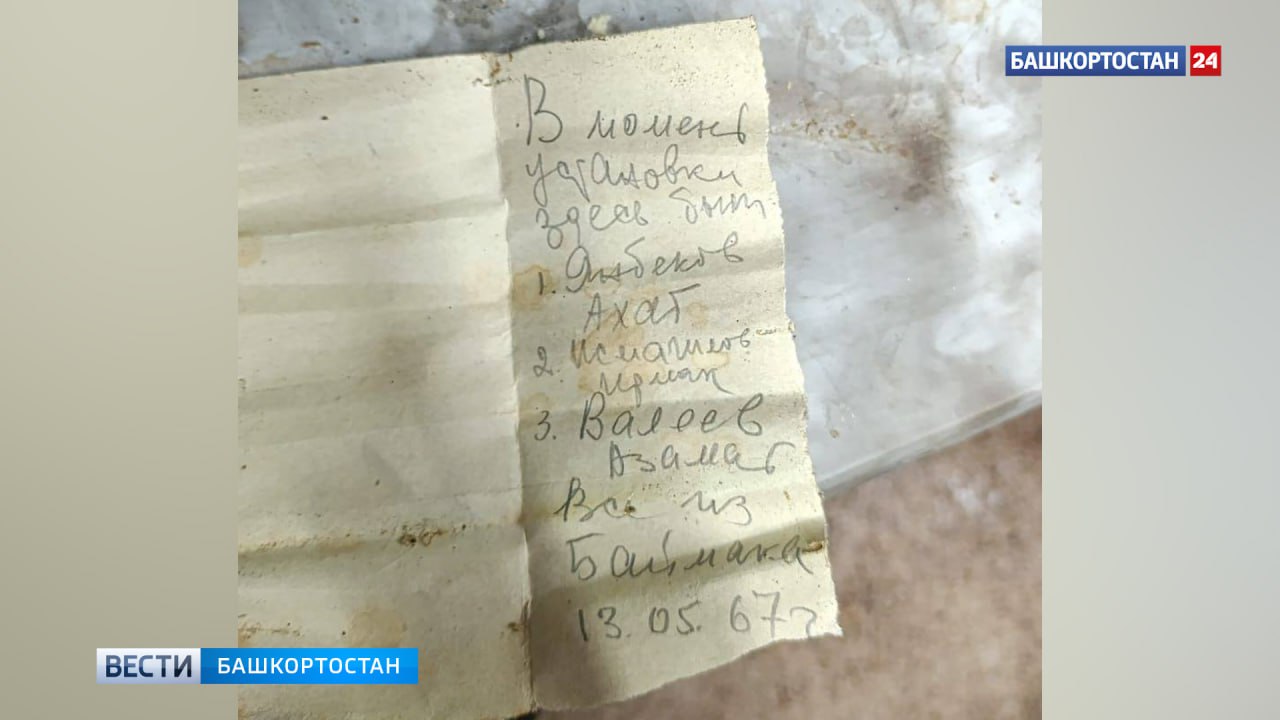 БАШКОРТОСТАН 24
В момент
установки
здесь были
1. Янбеков
Ахат
2. Исмагилов
3. Валеев
Азамат
Все из
Баймака
13.05.67г
ВЕСТИ БАШКОРТОСТАН